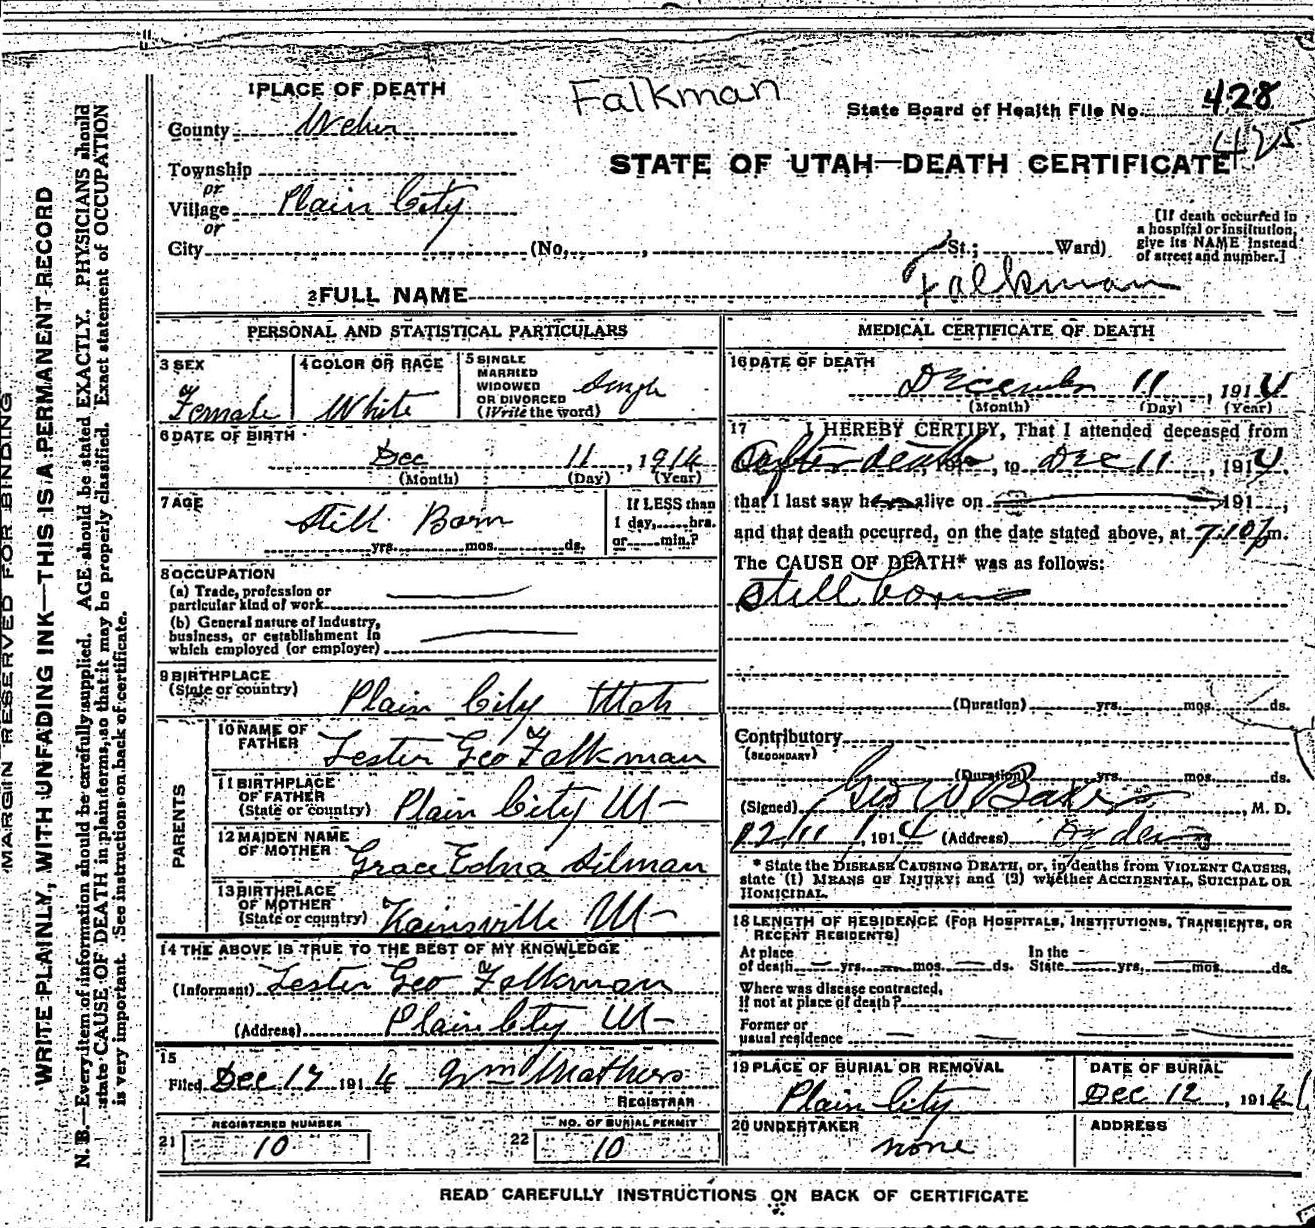 Falkman
1 PLACE OF DEATH
State Board of Health File No. 428
425
County Weber
STATE OF UTAH—DEATH CERTIFICATE
Township
or
Village Plain City
or
City (No. , St.; Ward)
[If death occurred in
a hospital or institution,
give its NAME instead
of street and number.]
2 FULL NAME Falkman
PERSONAL AND STATISTICAL PARTICULARS
3 SEX
Female
4 COLOR OR RACE
White
5 SINGLE
MARRIED
WIDOWED
OR DIVORCED
(Write the word)
Single
6 DATE OF BIRTH
Dec 11, 1914
(Month) (Day) (Year)
7 AGE
Still Born
yrs. mos. ds.
If LESS than
1 day, hrs.
or min.?
8 OCCUPATION
(a) Trade, profession or
particular kind of work
(b) General nature of industry,
business, or establishment in
which employed (or employer)
9 BIRTHPLACE
(State or country) Plain City Utah
PARENTS
10 NAME OF
FATHER Lester Geo Falkman
11 BIRTHPLACE
OF FATHER
(State or country) Plain City Ut
12 MAIDEN NAME
OF MOTHER Grace Edna
13 BIRTHPLACE
OF MOTHER
(State or country) Ut
14 THE ABOVE IS TRUE TO THE BEST OF MY KNOWLEDGE
(Informant) Lester Geo Falkman
(Address) Plain City Ut
15
Filed Dec 17 1914 Wm Mathers
REGISTRAR
REGISTERED NUMBER
21 10
NO. OF BURIAL PERMIT
22 10
MEDICAL CERTIFICATE OF DEATH
16 DATE OF DEATH
December 11, 1914
(Month) (Day) (Year)
17 I HEREBY CERTIFY, That I attended deceased from
after death 191 , to Dec 11, 1914
that I last saw her alive on 191 ,
and that death occurred, on the date stated above, at 7:10 p m.
The CAUSE OF DEATH* was as follows:
Still born
(Duration) yrs. mos. ds.
Contributory
(SECONDARY)
(Duration) yrs. mos. ds.
(Signed) Geo W Baker, M. D.
12/11, 1914 (Address) Ogden
* State the DISEASE CAUSING DEATH, or, in deaths from VIOLENT CAUSES,
state (1) MEANS OF INJURY; and (2) whether ACCIDENTAL, SUICIDAL OR
HOMICIDAL.
18 LENGTH OF RESIDENCE (FOR HOSPITALS, INSTITUTIONS, TRANSIENTS, OR
RECENT RESIDENTS)
At place
of death yrs. mos. ds.
In the
State yrs. mos. ds.
Where was disease contracted,
if not at place of death?
Former or
usual residence
19 PLACE OF BURIAL OR REMOVAL
Plain City
DATE OF BURIAL
Dec 12, 1914
20 UNDERTAKER
none
ADDRESS
READ CAREFULLY INSTRUCTIONS ON BACK OF CERTIFICATE
MARGIN RESERVED FOR BINDING
WRITE PLAINLY, WITH UNFADING INK—THIS IS A PERMANENT RECORD
N. B.—Every item of information should be carefully supplied. AGE should be stated EXACTLY. PHYSICIANS should
state CAUSE OF DEATH in plain terms, so that it may be properly classified. Exact statement of OCCUPATION
is very important. See instructions on back of certificate.